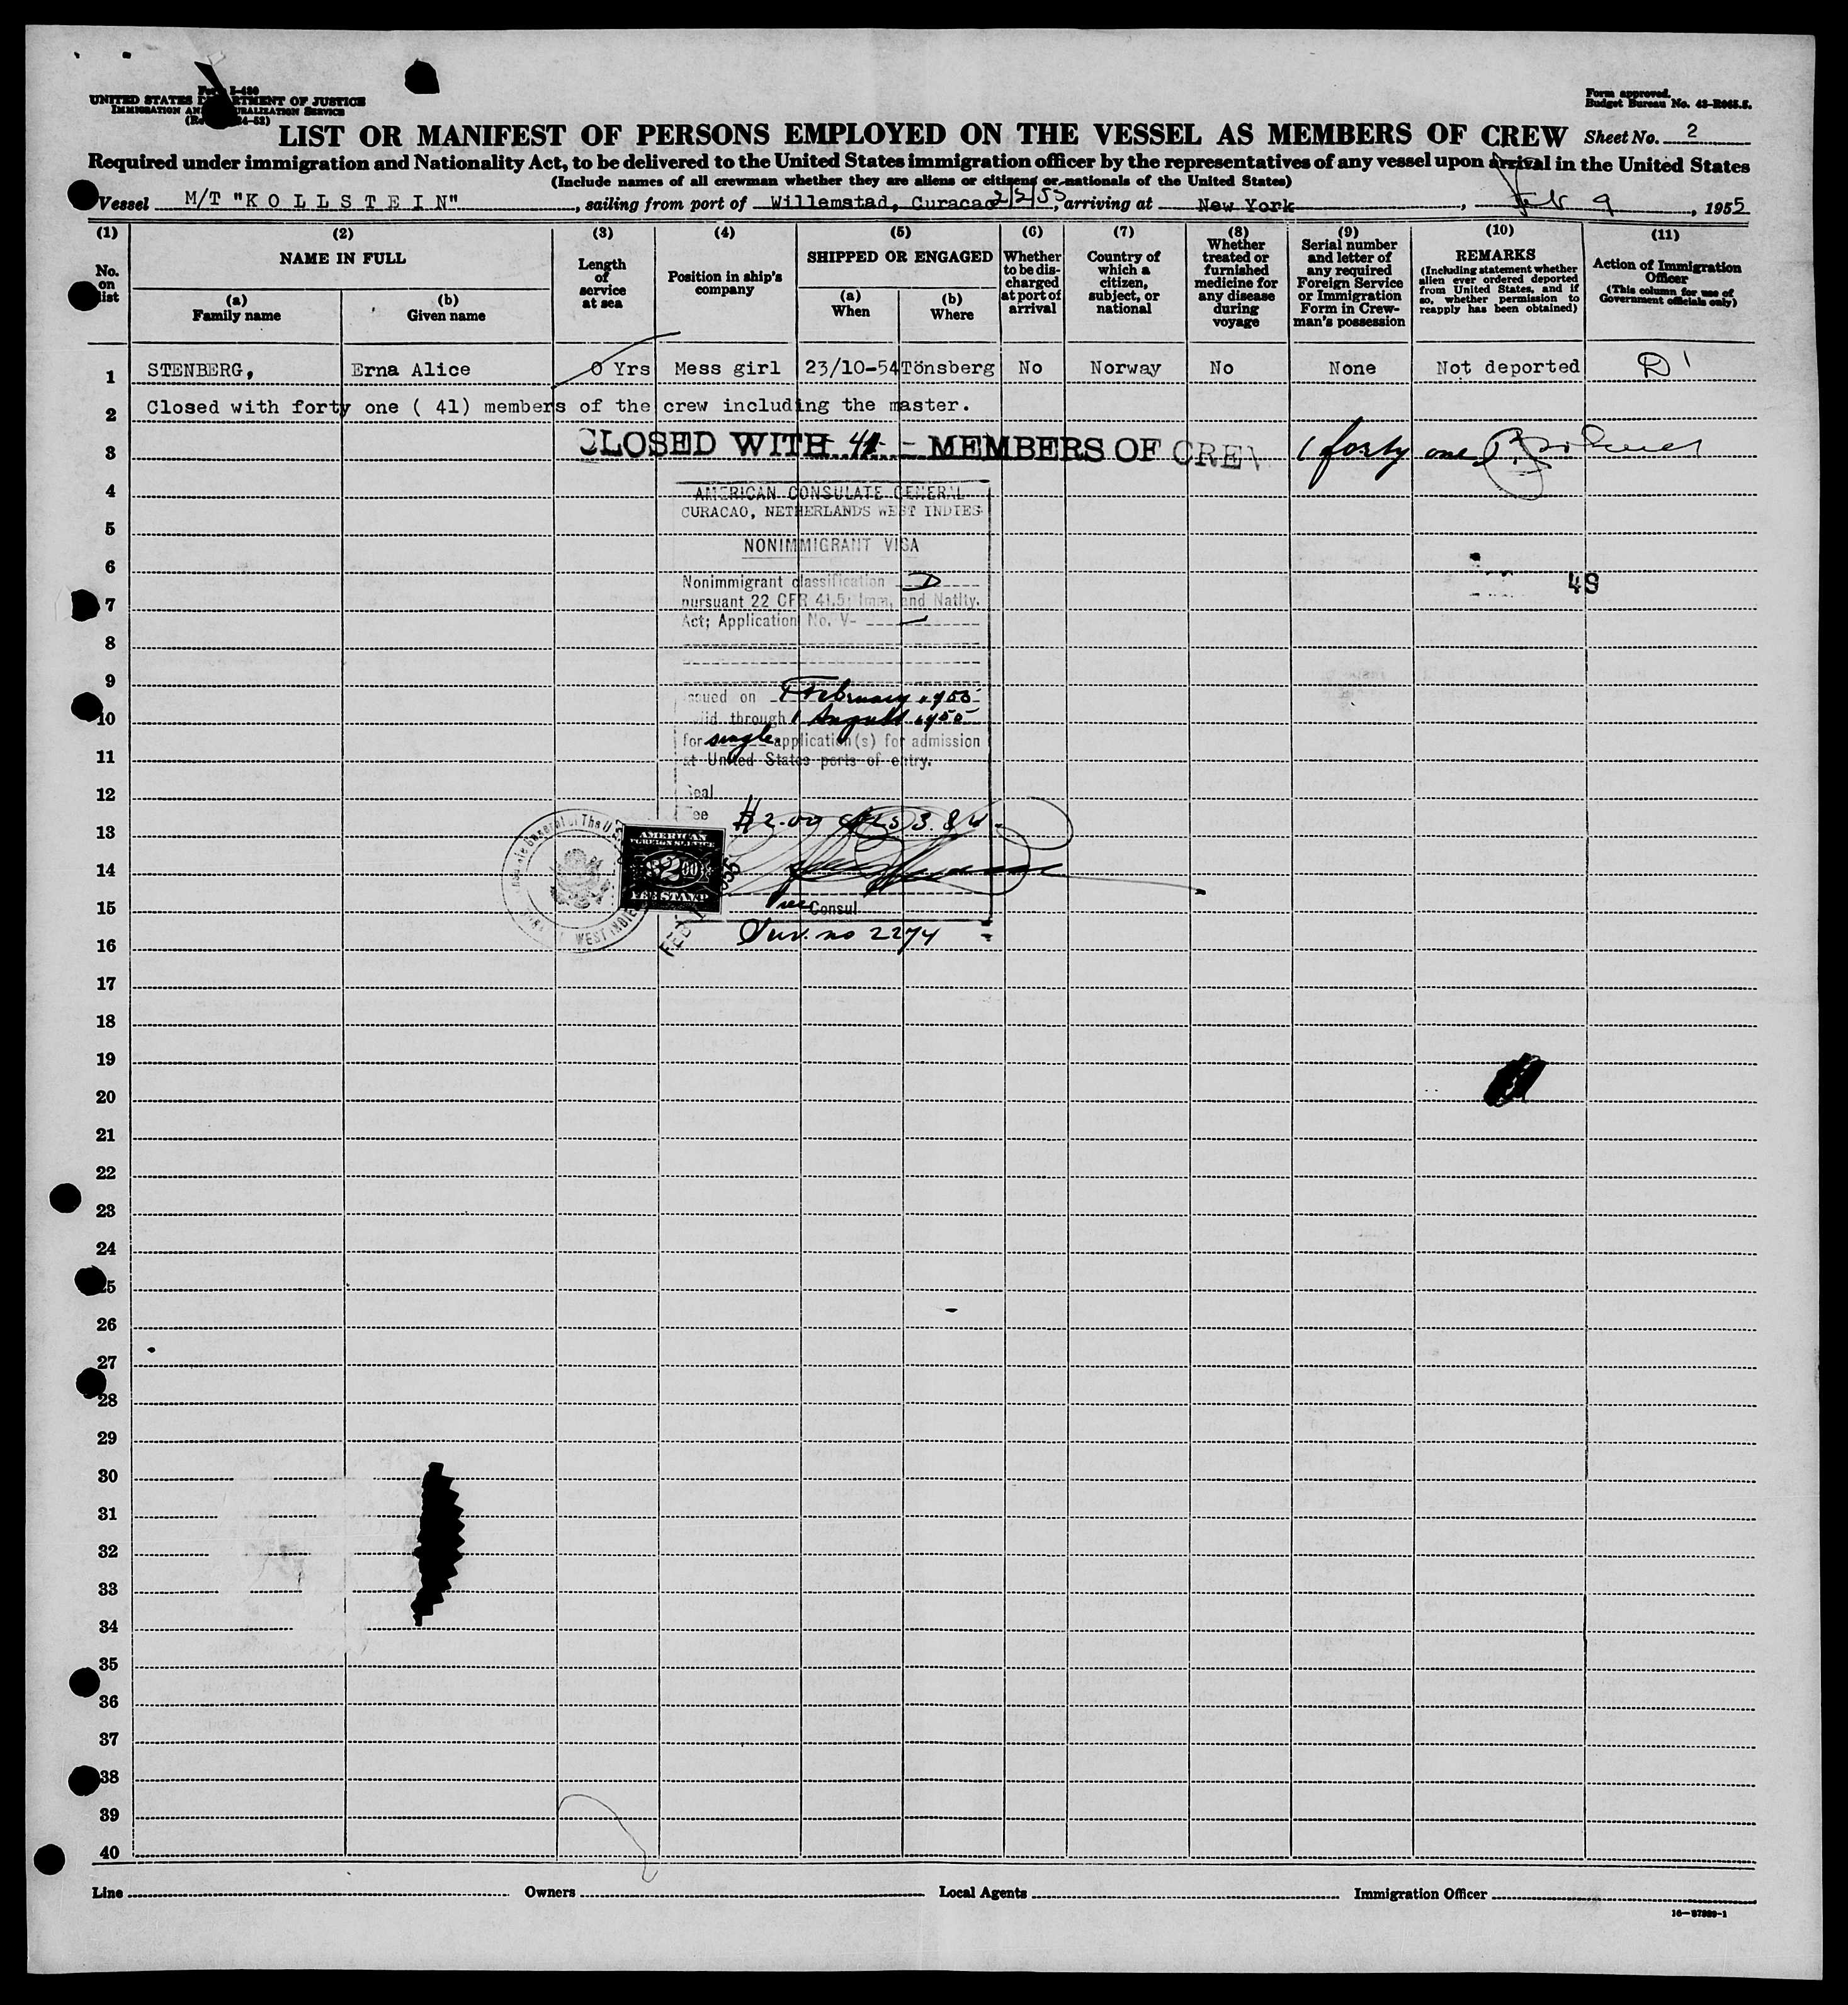 Form I-480
UNITED STATES DEPARTMENT OF JUSTICE
IMMIGRATION AND NATURALIZATION SERVICE
Form approved.
Budget Bureau No. 43-R065.5.
LIST OR MANIFEST OF PERSONS EMPLOYED ON THE VESSEL AS MEMBERS OF CREW Sheet No. 2
Required under immigration and Nationality Act, to be delivered to the United States immigration officer by the representatives of any vessel upon arrival in the United States
(Include names of all crewman whether they are aliens or citizens or nationals of the United States)
Vessel M/T "KOLLSTEIN", sailing from port of Willemstad, Curacao 2/2/55, arriving at New York, Feb 9, 1955
(1) No. on list
(2) NAME IN FULL
(a) Family name
(b) Given name
(3) Length of service at sea
(4) Position in ship's company
(5) SHIPPED OR ENGAGED
(a) When
(b) Where
(6) Whether to be discharged at port of arrival
(7) Country of which a citizen, subject, or national
(8) Whether treated or furnished medicine for any disease during voyage
(9) Serial number and letter of any required Foreign Service or Immigration Form in Crewman's possession
(10) REMARKS (Including statement whether alien ever ordered deported from United States, and if so, whether permission to reapply has been obtained)
(11) Action of Immigration Officer (This column for use of Government officials only)
1 STENBERG, Erna Alice 0 Yrs Mess girl 23/10-54 Tönsberg No Norway No None Not deported D
2 Closed with forty one ( 41) members of the crew including the master.
3 CLOSED WITH 41 - MEMBERS OF CREW (forty one)
4 AMERICAN CONSULATE GENERAL
CURACAO, NETHERLANDS WEST INDIES
5
NONIMMIGRANT VISA
6 Nonimmigrant classification D
48
7 pursuant 22 CFR 41.5; Imm. and Natlty.
Act; Application No. V-
8
9
Issued on 1 February 1955
10 Valid through 1 August 1955
for single application(s) for admission
11 at United States ports of entry.
12 Seal
Fee $2.00
13
AMERICAN
FOREIGN SERVICE
$2.00
FEE STAMP
14
15 Vice Consul
WEST INDIES
FEB 1 1955
16 Serv. no 2274
17
18
19
20
21
22
23
24
25
26
27
28
29
30
31
32
33
34
35
36
37
38
39
40
Line Owners Local Agents Immigration Officer